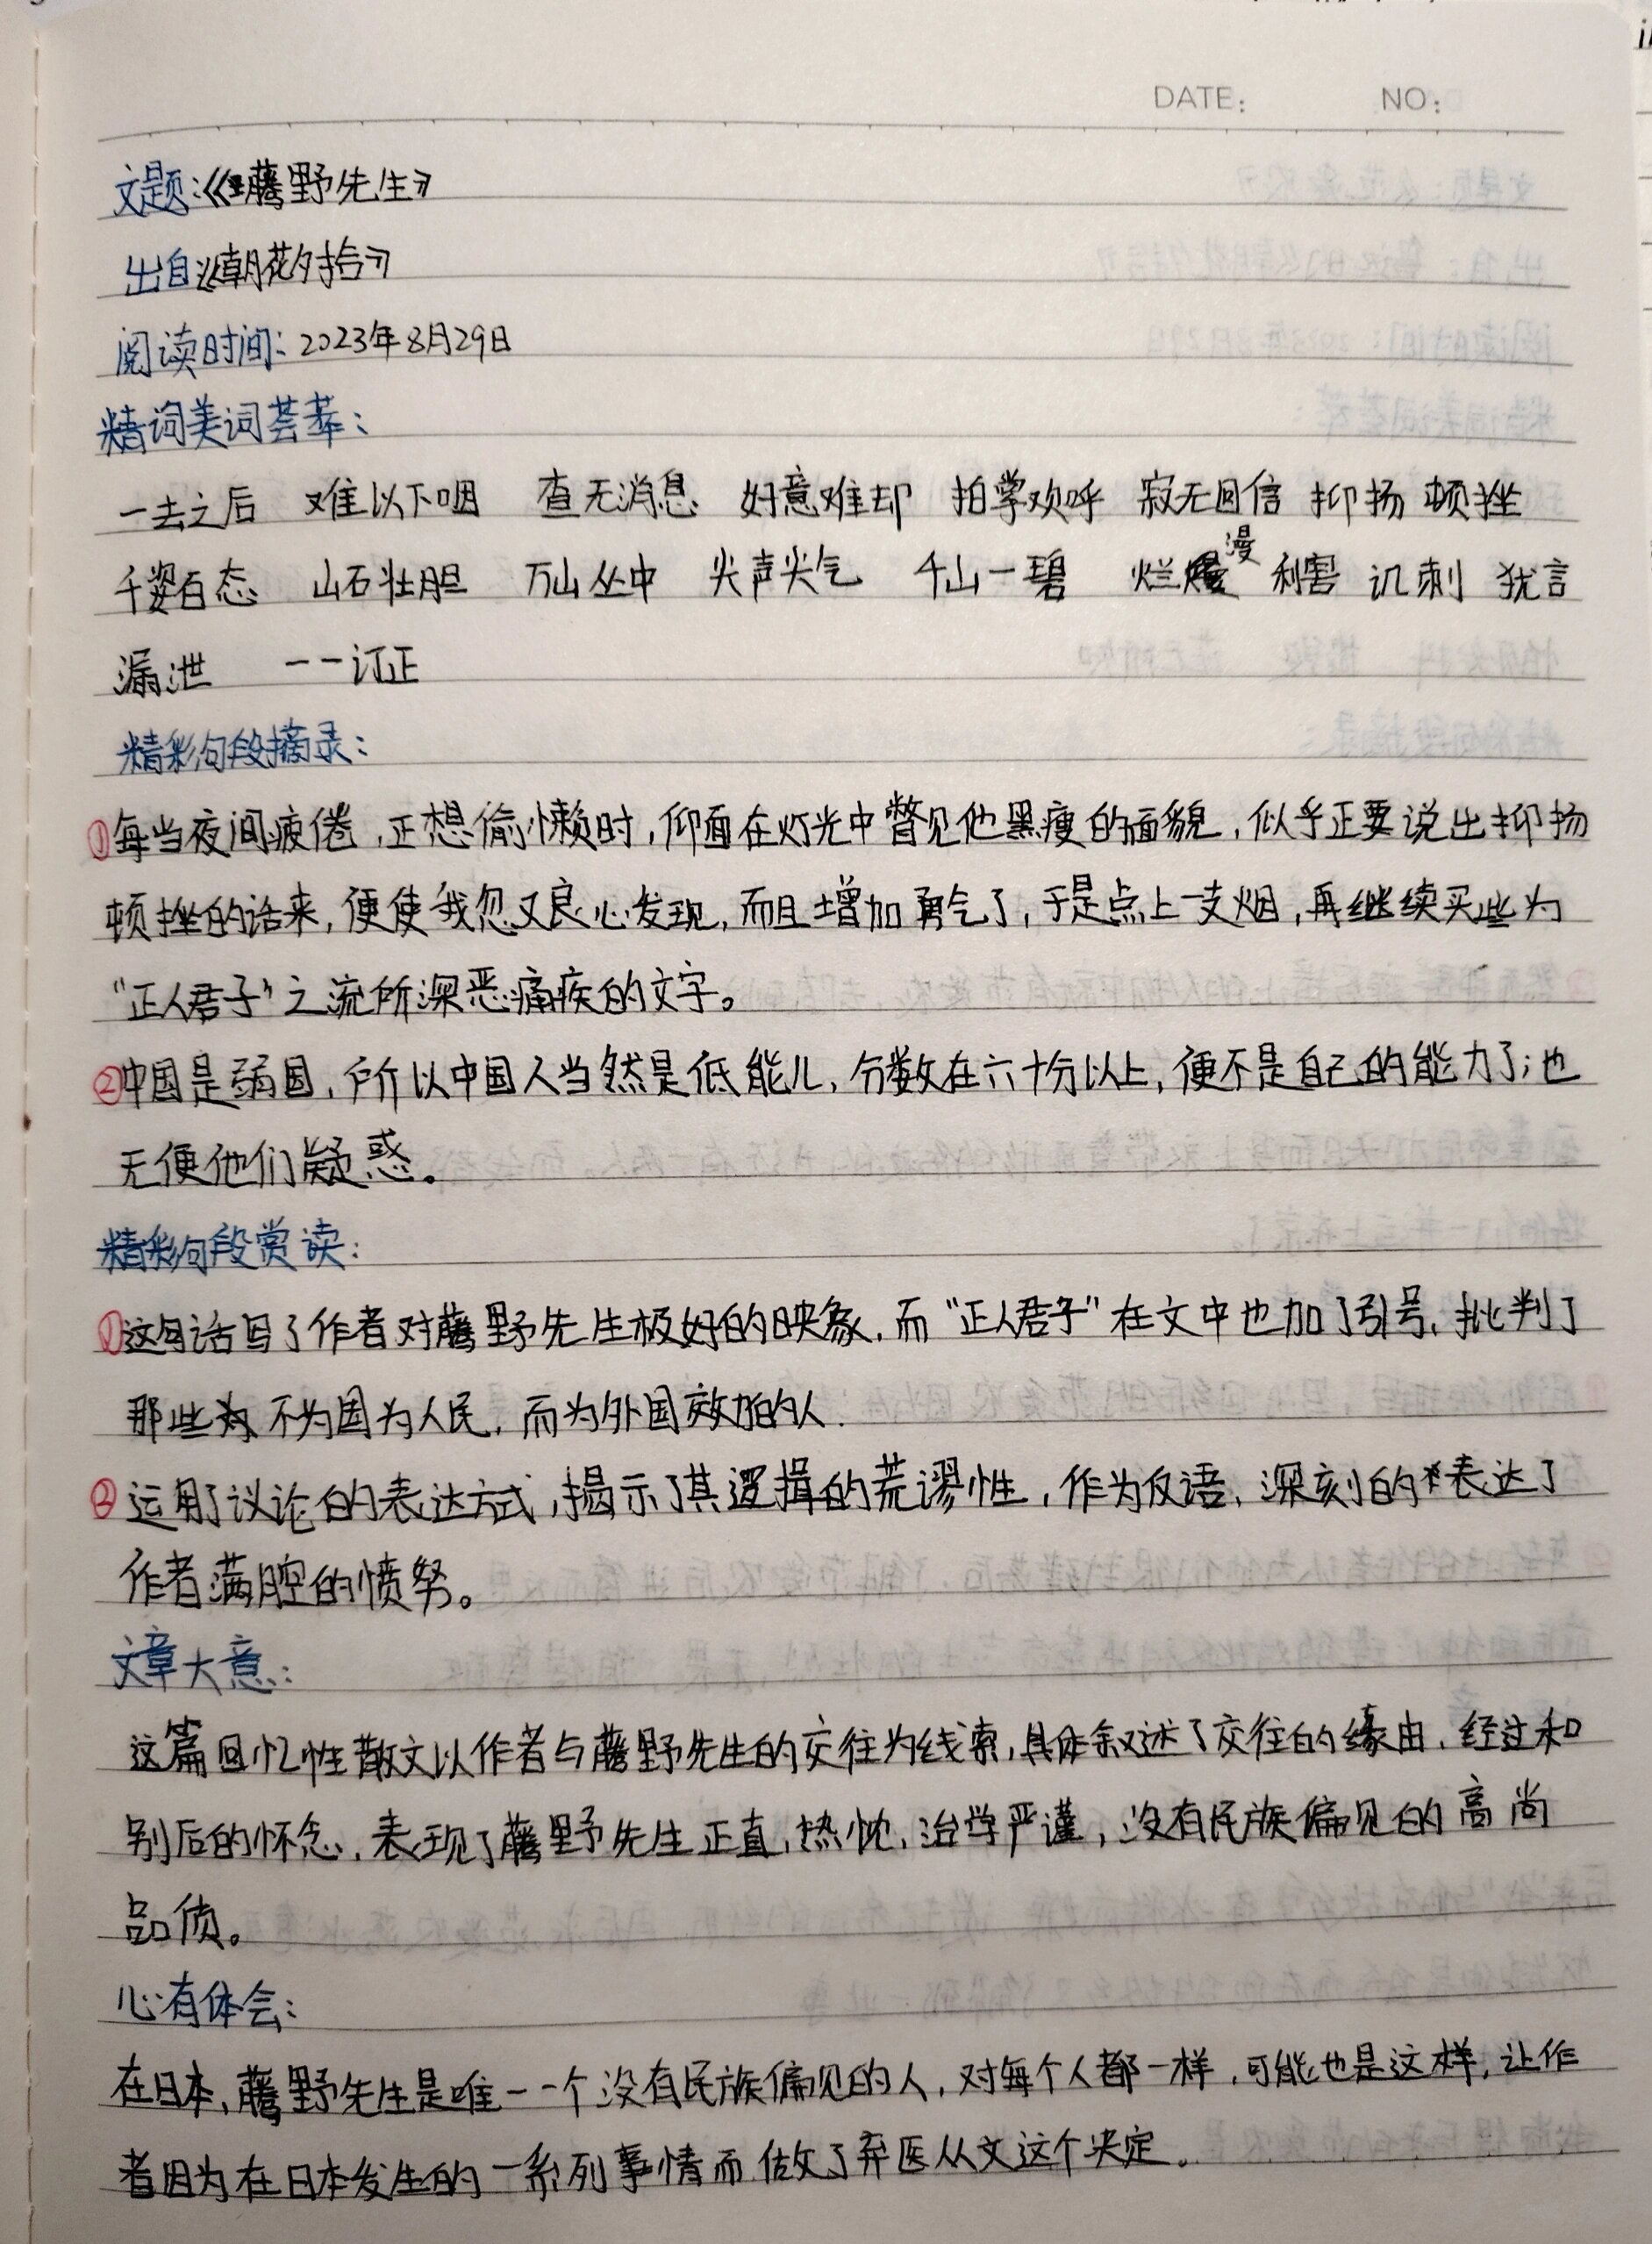 DATE: NO:
文题:《藤野先生》
出自《朝花夕拾》
阅读时间: 2023年8月29日
精词美词荟萃:
一去之后 难以下咽 查无消息 好意难却 拍掌欢呼 寂无回信 抑扬顿挫
千姿百态 山石壮胆 万山丛中 尖声尖气 千山一碧 烂漫 利害 讥刺 犹言
漏泄 一一订正
精彩句段摘录:
①每当夜间疲倦,正想偷懒时,仰面在灯光中瞥见他黑瘦的面貌,似乎正要说出抑扬
顿挫的话来,便使我忽又良心发现,而且增加勇气了,于是点上一支烟,再继续买些为
“正人君子”之流所深恶痛疾的文字。
②中国是弱国,所以中国人当然是低能儿,分数在六十分以上,便不是自己的能力了;也
无便他们疑惑。
精彩句段赏读:
①这句话写了作者对藤野先生极好的映象,而“正人君子”在文中也加了引号,批判了
那些不为国为人民,而为外国效加的人.
②运用了议论的表达方式,揭示了其逻辑的荒谬性,作为反语,深刻的表达了
作者满腔的愤努。
文章大意:
这篇回忆性散文以作者与藤野先生的交往为线索,具体叙述了交往的缘由、经过和
别后的怀念,表现了藤野先生正直,热忱,治学严谨,没有民族偏见的高尚
品质。
心有体会:
在日本,藤野先生是唯一一个没有民族偏见的人,对每个人都一样,可能也是这样,让作
者因为在日本发生的一系列事情而做了弃医从文这个决定。